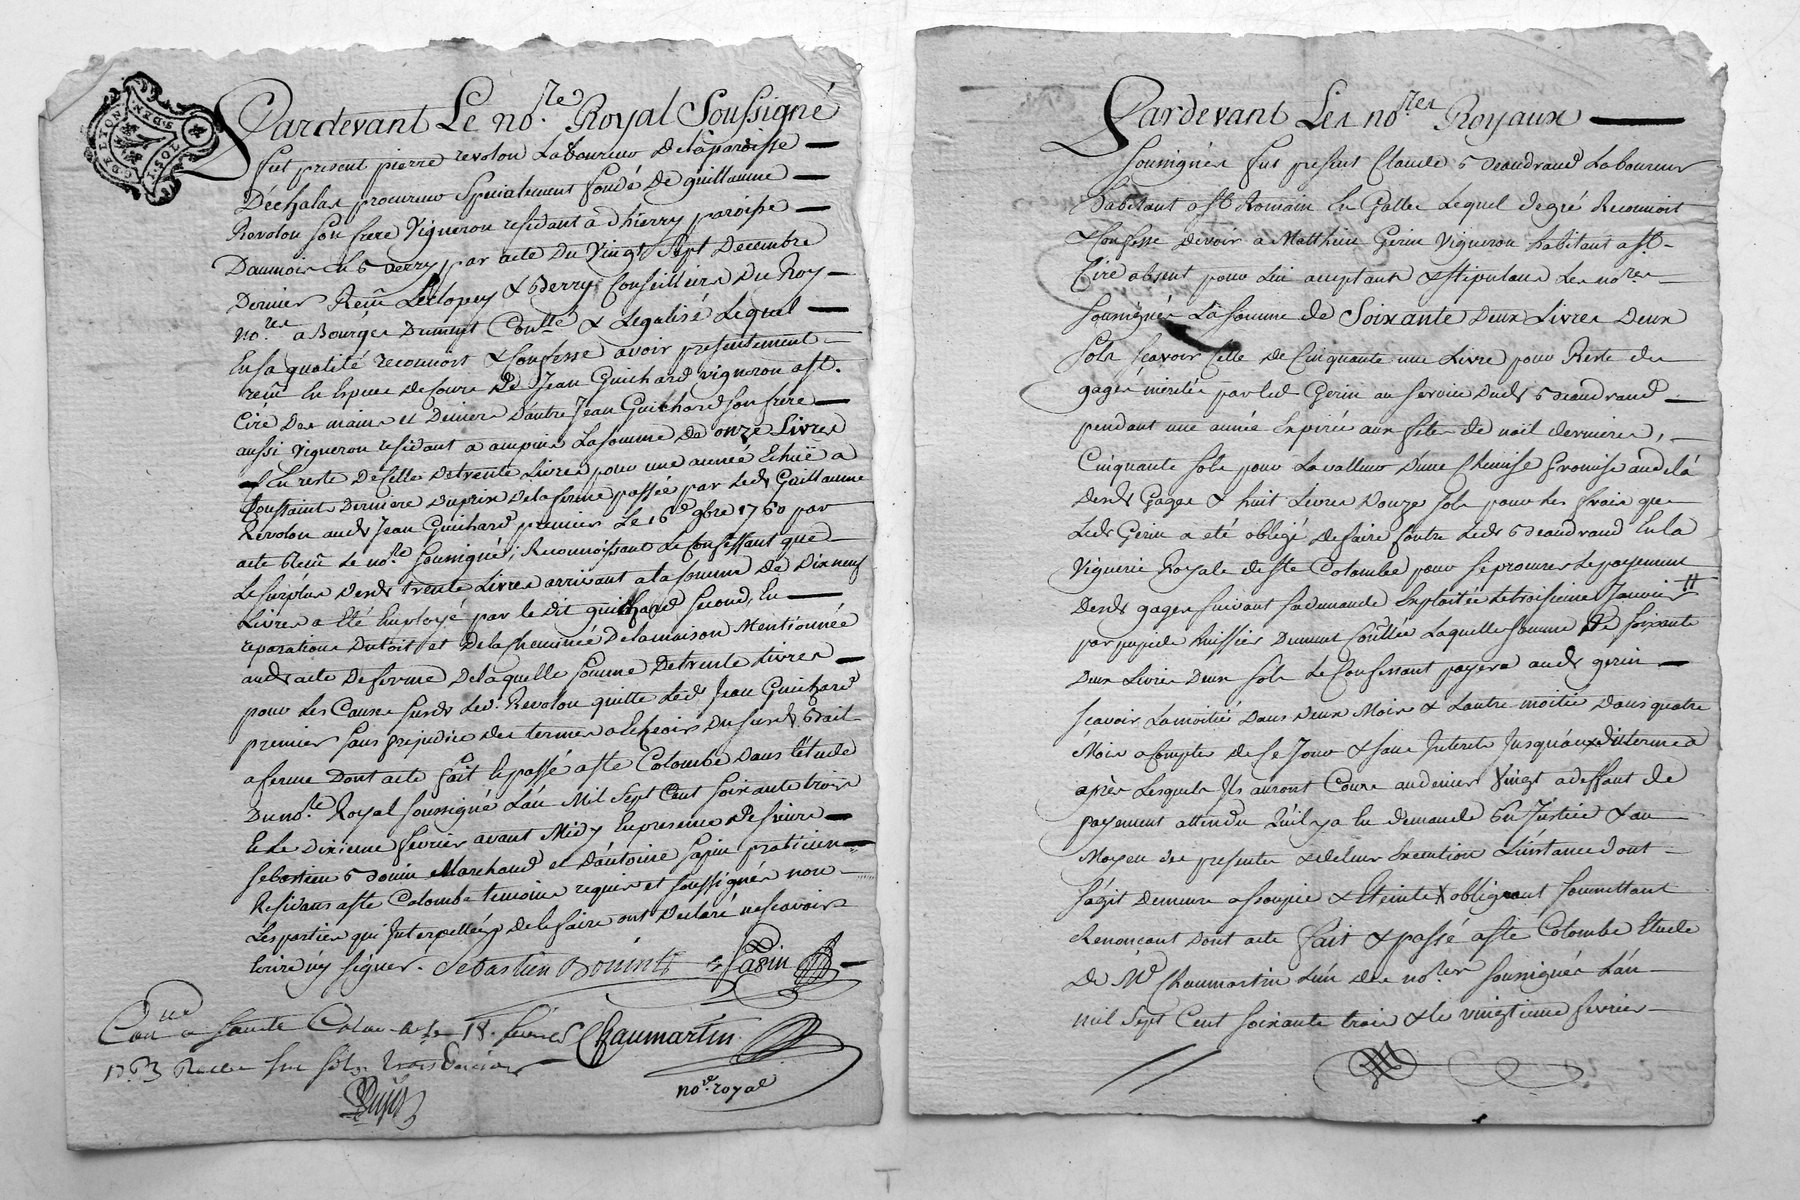 G. DE LYON
1. SOL
8. DEN
Pardevant Le no.re Royal Soussigné
fut present pierre revolon Laboureur De la paroisse
D'echalas procureur Specialement fondé De guillaume
Revolon son frere Vigneron residant a thierry paroisse
en berry par acte Du Vingt Sept Decembre
Dernier Reçu Leclopey & Berry Conseilliers Du Roy
no.res a Bourges Dument Coullé & Legalisé Lequel
En sa qualité reconnoit & Confesse avoir presentement
reçu En Espece De Cours De Jean Guichard vigneron a St.
Cire Des mains et Deniers D'autre Jean Guichard son frere
aussi Vigneron residant a ampuis La somme De onze Livres
En reste De Celle De trente Livres pour une année Echuë a
Toussaint Derniere Du prix De la ferme passée par Led. Guillaume
Revolon aud. Jean Guichard premier Le 16e 9bre 1760 par
acte Reçu Le no.re Soussigné; Reconnoissant Le Confessant que
Le Surplus Desd. trente Livres arrivant a la somme De Dix neuf
Livres a Eté Employé par le dit guichard second, En
reparations Du toit et De la cheminée De la maison Mentionnée
aud. acte De ferme De laquelle somme De trente Livres
pour Les Causes susd. Led. Revolon quitte Led. Jean Guichard
premier sans prejudice Des termes a Echeoir Du susd. Bail
a ferme Dont acte fait Et passé a Ste Colombe Dans l'étude
Du no.re Royal soussigné L'an Mil Sept Cent soixante trois
Et Le Dixieme fevrier avant Midy En presence De sieurs
Sebastien Bonin Marchand et D'antoine Sapin praticien
Residans a Ste Colombe temoins requis et soussignés non
Les parties qui Interpellées De le faire ont Declaré ne scavoir
Ecrire ny signer. Sebastien Bonin Sapin
Con.lle a Sainte Colombe le 18. fevrier Chaumartin
1763 Reçu sols
no.re royal
Pardevant Les no.res Royaux
Soussignés fut present Claude Laboureur
habitant a St. Romain En Gallee Lequel de gré Reconnoit
& Confesse devoir a Matthieu Gerin Vigneron habitant a St.
Cire absent pour Lui acceptant & stipulans Les no.res
Soussignés La somme de Soixante Deux Livres Deux
Sols scavoir Celle de Cinquante une Livre pour Reste des
gages merités par led Gerin au service Dud.
pendant une année Expirée aux fetes de noël dernieres,
Cinquante sols pour La valleur D'une Chemise promise audelà
Desd. Gages & huit Livres Douze sols pour les frais que
Led. Gerin a été obligé De faire Contre Led. En la
Viguerie Royale de Ste Colombe pour se procurer Le payement
Desd. gages suivant sa demande Exploitée Le troisieme Janvier
par huissier Dument Coullée Laquelle somme De soixante
Deux Livres Deux sols Le Confessant payera aud. gerin
scavoir La moitié Dans Deux Mois & L'autre moitié Dans quatre
Mois a Compter de Ce Jour & sans Interets Jusqu'auxdits termes
après Lesquels Ils auront Cours au denier Vingt a deffaut de
payement attendu Qu'il y a Eu demande En Justice & au
Moyen des presentes & de leur Execution L'instance dont
s'agit demeure assoupie & Eteinte obligeant soumettant
Renonçant Dont acte fait & passé a Ste Colombe Etude
de Me Chaumartin L'un des no.res soussignés L'an
mil Sept Cent soixante trois & le vingtieme fevrier